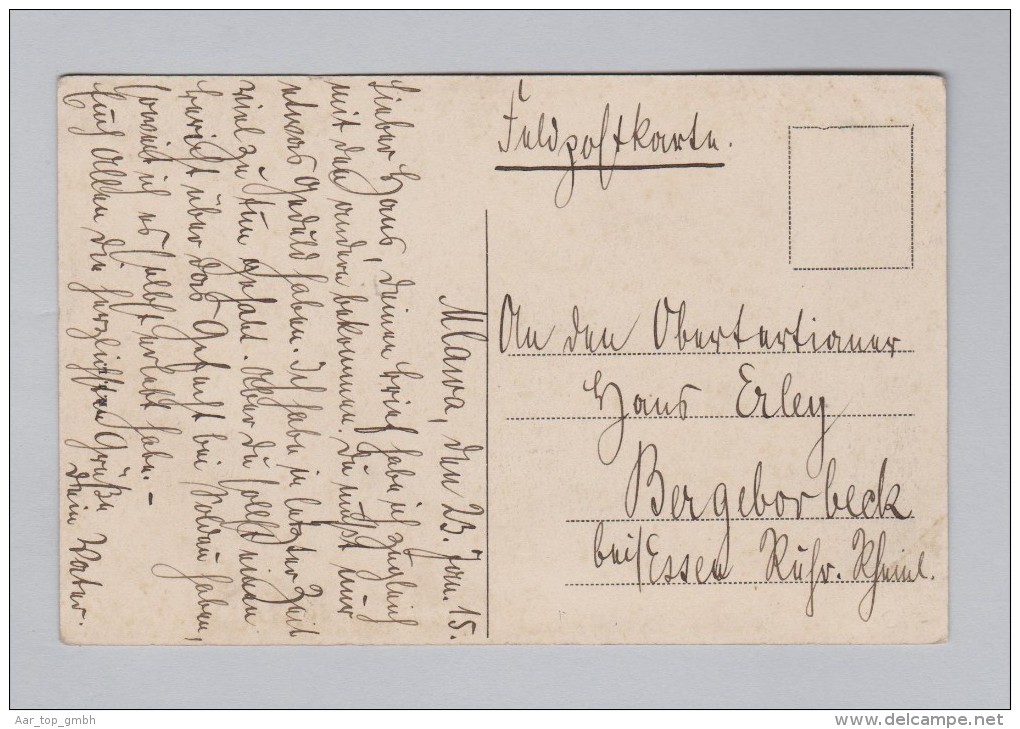 Feldpostkarte.
An den Obertertianer
Hans Erley
Bergeborbeck
bei/Essen Ruhr. Rheinl.
Mlawa, den 23. Jan. 15.
Lieber Hans, deinen Brief habe ich zugleich
mit den andern bekommen. Du mußt nur
etwas Geduld haben. Ich habe in letzter Zeit
viel zu tun gehabt. Aber du sollst einen
Bericht über das Gefecht bei Soldau haben,
soweit ich es selbst erlebt habe. –
Euch allen die herzlichsten Grüße
Dein Vater.
Aar_top_gmbh
www.delcampe.net